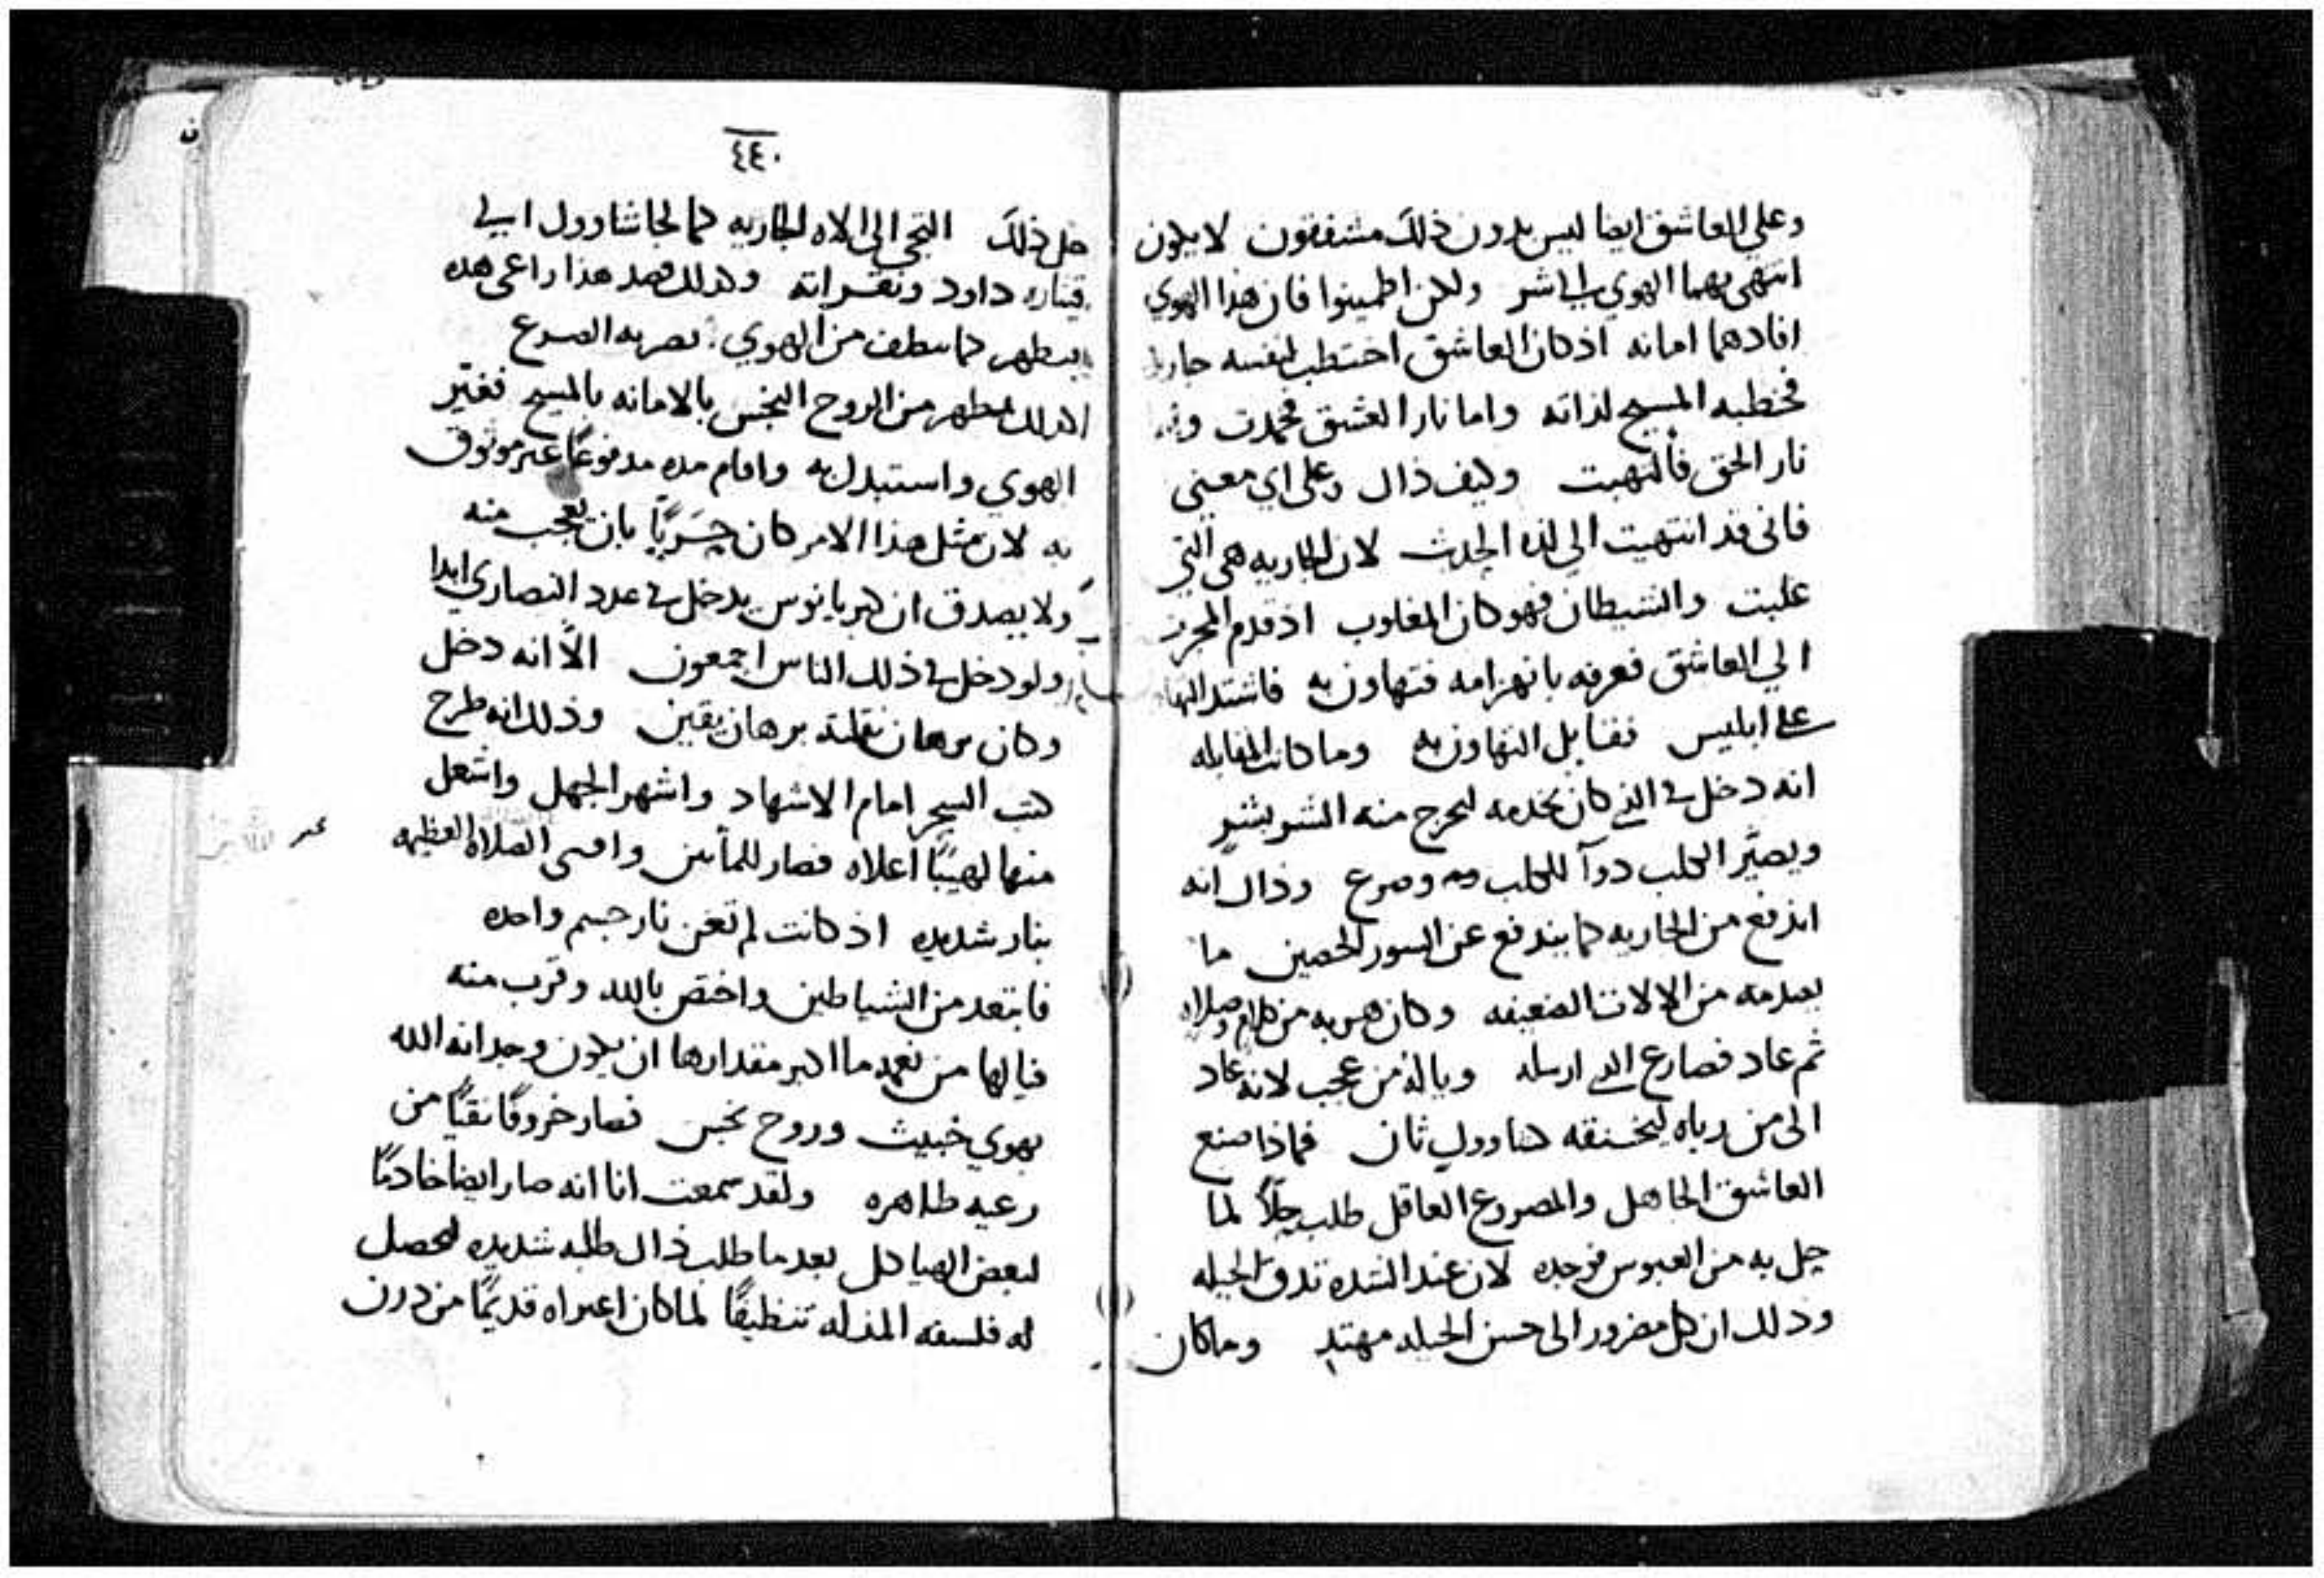 وعلي العاشق ايضا ليس بدون ذلك مشفقون لا يكون
انتهى بهما الهوي الي شر ولكن اطمينوا فان هذا الهوي
افادهما امانه اذ كان العاشق اختطب لنفسه جاريه
فخطبه المسيح لذاته واما نار العشق فخمدت
نار الحق فالتهبت وكيف ذاك وعلى اي معني
فاني قد انتهيت الي لذه الحدث لان الجاريه هي التي
غلبت والشيطان فهو كان المغلوب اذ قدم المجرب
الي العاشق فعرفه بانهزامه فتهاون به فاشتد
على ابليس فقابل التهاون به وما كانت المقابله
انه دخل في الذي كان يخدمه ليخرج منه الشر بشر
ويصير الكلب دوآ للكلب وصرع وذاك انه
اندفع من الجاريه كما يندفع عن السور الحصين ما
يصدمه من الالات الضعيفه وكان هربه من كلام وصلاه
ثم عاد فصارع الذي ارسله وياله من عجب لانه عاد
الى من رباه ليخنقه كشاوول ثان فماذا صنع
العاشق الجاهل والمصروع العاقل طلب حلاً لما
حل به من العبوس فوجده لان عند الشده تدق الحيله
وذلك ان كل مضرور الى حسن الحيله مهتدٍ وما كان
٤٤٠
حل ذلك التجى الى الاه الجاريه كما لجا شاوول الي
قيثاره داود ونقراته وكذلك قصد هذا راعى هذه
فتطهر كما ينظف من الهوي بضربه الصرع
كذلك يطهر من الروح النجس بالامانه بالمسيح فغير
الهوي واستبدل به واقام مده مدفوعاً غير موثوق
به لان مثل هذا الامر كان حريّاً بان يعجب منه
ولا يصدق ان كبريانوس يدخل في عدد النصاري ابدا
ولو دخل في ذلك الناس اجمعون الاّ انه دخل
وكان برهان نقلته برهان يقين وذلك انه طرح
كتب السحر امام الاشهاد واشهر الجهل واشعل
منها لهيبًا اعلاه فصار وافنى الضلاله العظيمه
بنار شديده اذ كانت لم تغن نار جسم واحده
فابتعد من الشياطين واختص بالله وقرب منه
فيالها من نعمه ما اكبر مقدارها ان يكون وجدانه الله
بهوي خبيث وروح نجس فصار خروفًا نقيًّا من
رعيه طاهره ولقد سمعت انا انه صار ايضا خادمًا
لبعض الهياكل بعد ما طلب ذاك طلبه شديده لتحصل
له فلسفه المذله تنظيفًا لما كان اعتراه قديمًا من درن